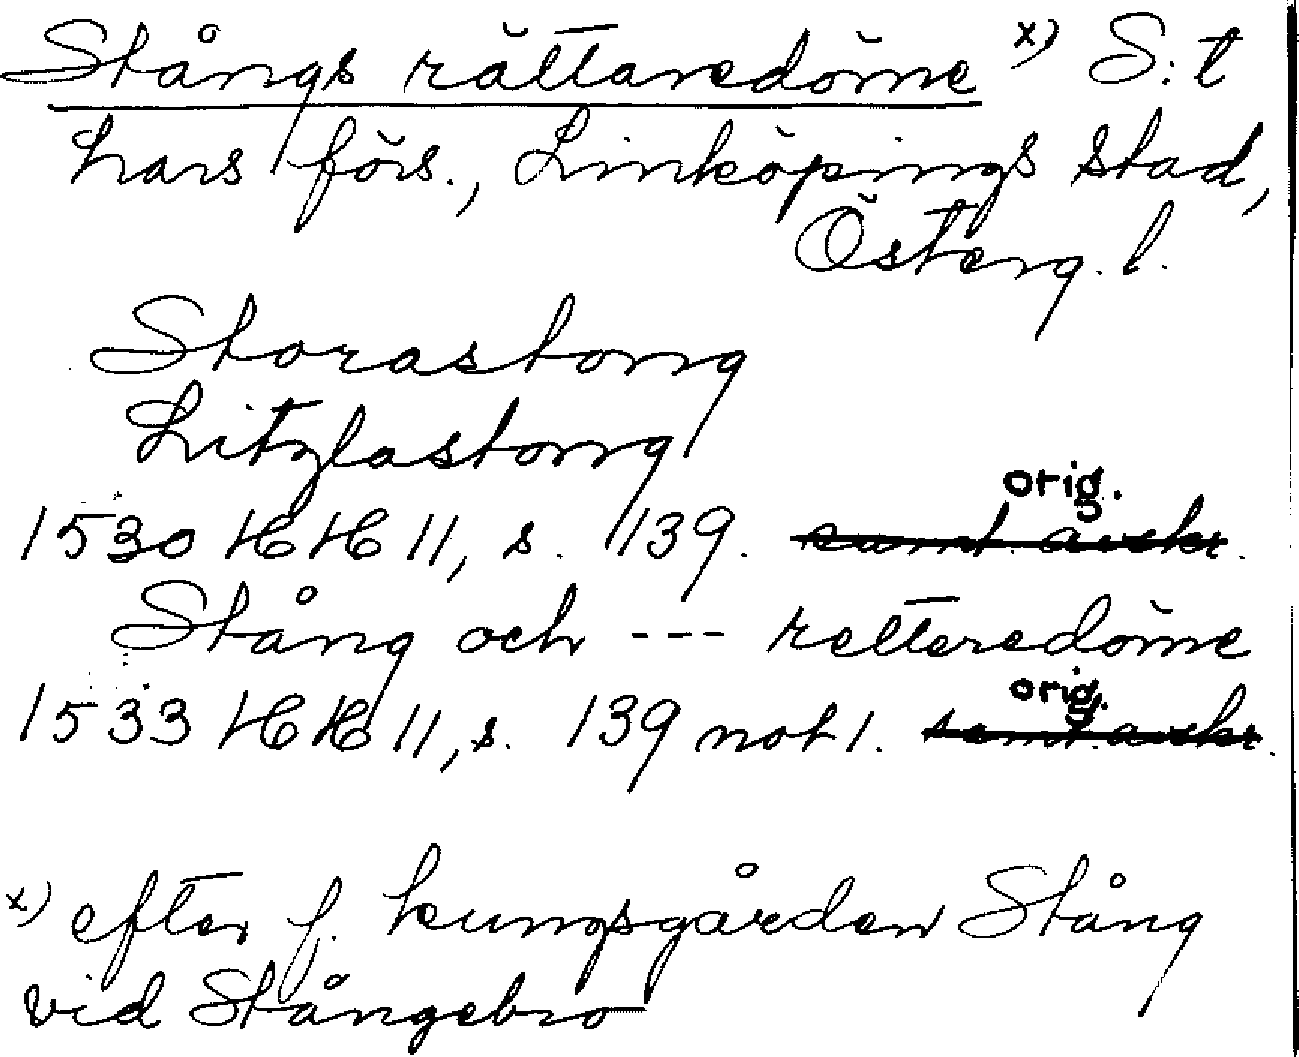 Stångs rättaredöme x) S:t
Lars förs., Linköpings stad,
Österg. l.
Storastong
Litzlastong
orig.
1530 HH 11, s. 139. samt. avskr.
Stång och --- retteredöme
orig.
1533 HH 11, s. 139 not 1. samt. avskr.
x) efter f. kungsgården Stång
vid Stångebro